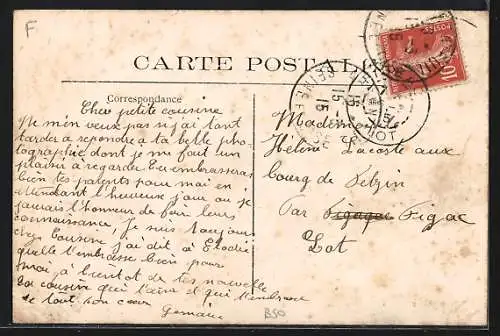 F
CARTE POSTALE
Correspondance
Cher petite cousine
Ne m'en veux pas si j'ai tant
tarder a repondre a ta belle pho-
tographie dont je me fait un
plaisir a regarder. Tu embrasseras
bien tes parents pour moi en
attendant l'heureux jour ou je
jaurais l'honneur de fair leurs
connaissance, je suis toujours
chez Cousine j'ai dit à Elodie
quelle t'embrasse bien pour
moi, a bientot de tes nouvelle
ta cousine qui t'aime et qui t'embrasse
de tout son coeur
Germaine
Mademoiselle
Hélène Lacoste aux
bourg de
Par Figeac
Lot
POSTES
10
15
B50